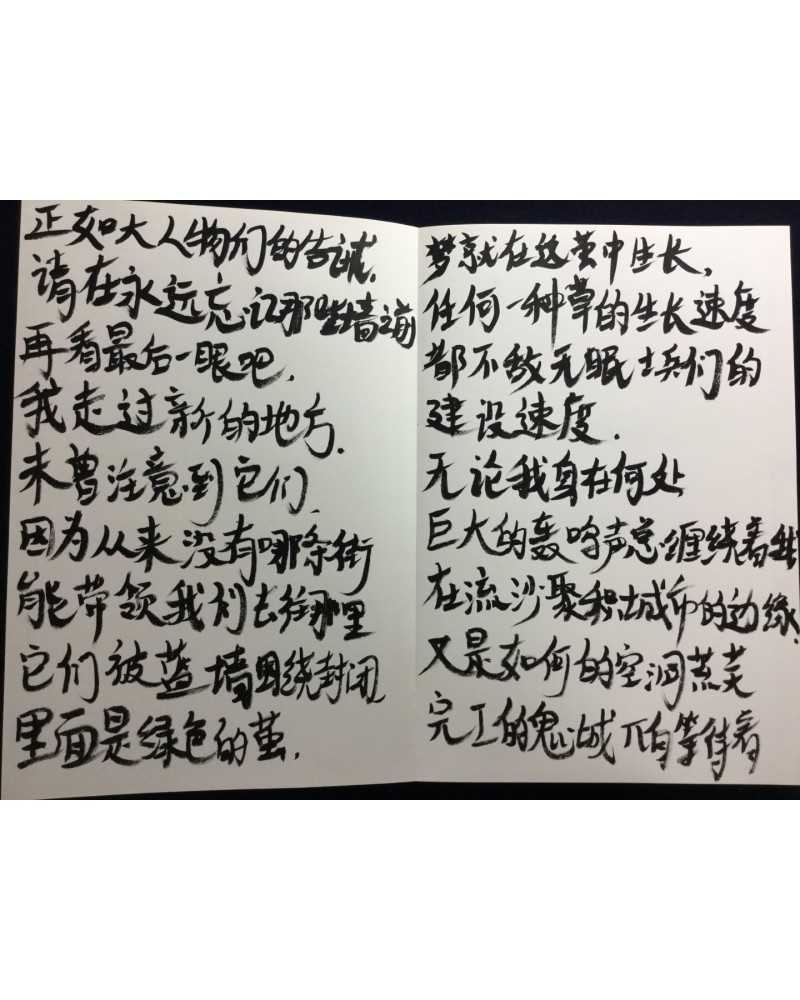 正如大人物们的告诫，
请在永远忘记那些墙之前
再看最后一眼吧，
我走过新的地方，
未曾注意到它们，
因为从来没有哪条街
能带领我们去往那里
它们被蓝墙围绕封闭
里面是绿色的茧，
梦就在这茧中生长，
任何一种草的生长速度
都不敌无眠士兵们的
建设速度．
无论我身在何处
巨大的轰鸣声总缠绕着我
在流沙聚积城市的边缘，
又是如何的空洞荒芜
完工的鬼城 等待着